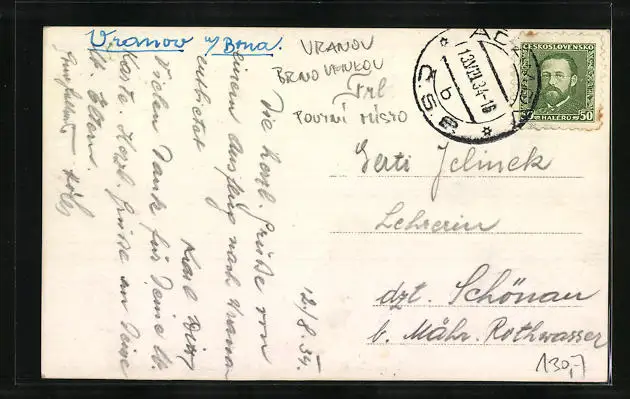 Vranov u/Brna.
VRANOV
BRNO VENKOV
POUTNÍ MÍSTO
ČESKOSLOVENSKO
50 HALÉŘŮ 50
Č.S.R.
Die herzl. Grüße von
einem Ausflug nach Vranau
entbietet
Karl
Vielen Dank für Deine lb.
Karte. Herzl. Grüße an Deine
lb. Eltern.
12/8.34.
Gerti Jelinek
Lehrerin
dzt. Schönau
b. Mähr. Rothwasser
130,-